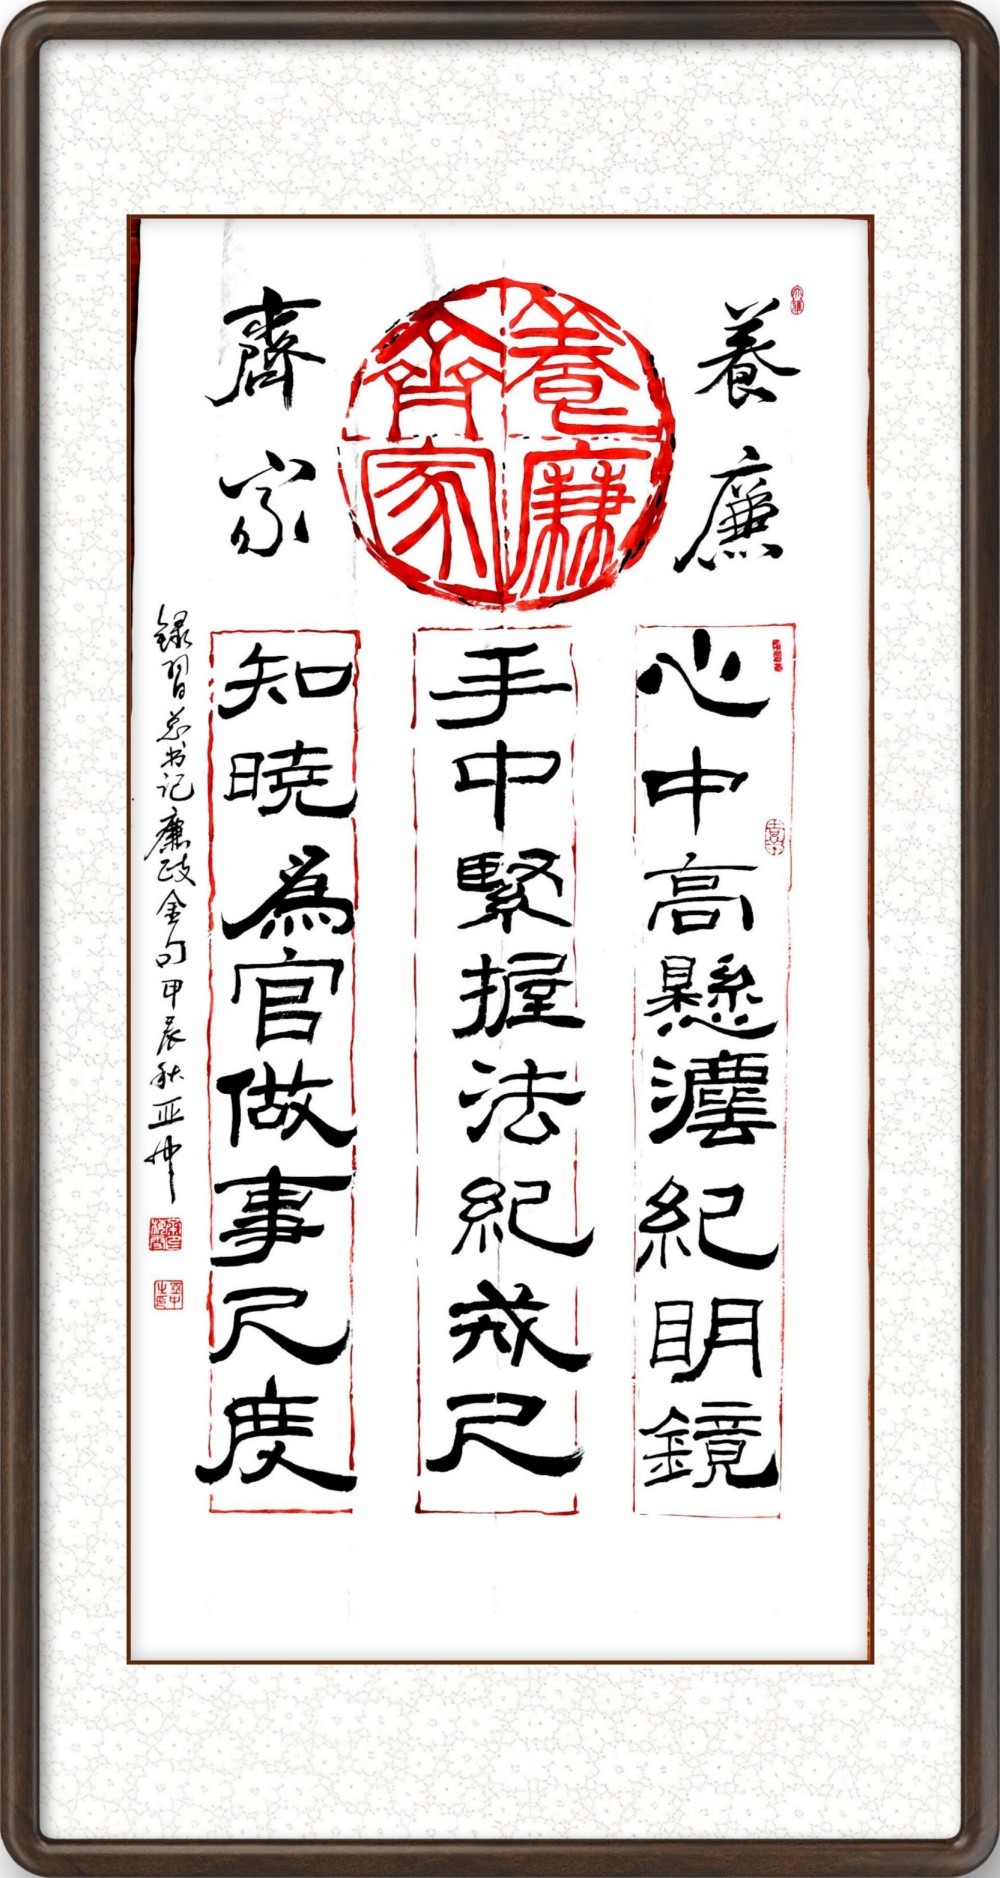 養廉
齊家
養廉齊家
心中高懸灋紀明鏡
手中緊握法紀戒尺
知曉爲官做事尺度
録習总书记廉政金句甲辰秋亚